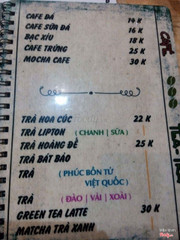 CAFE ĐÁ 14 K
CAFE SỮA ĐÁ 16 K
BẠC XỈU 18 K
CAFE TRỨNG 25 K
MOCHA CAFE 30 K
TRÀ HOA CÚC 22 K
TRÀ LIPTON ( CHANH | SỮA )
TRÀ HOÀNG ĐẾ 25 K
TRÀ BÁT BẢO
TRÀ ( PHÚC BỒN TỬ
VIỆT QUỐC )
TRÀ ( ĐÀO | VẢI | XOÀI )
GREEN TEA LATTE 30 K
MATCHA TRÀ XANH